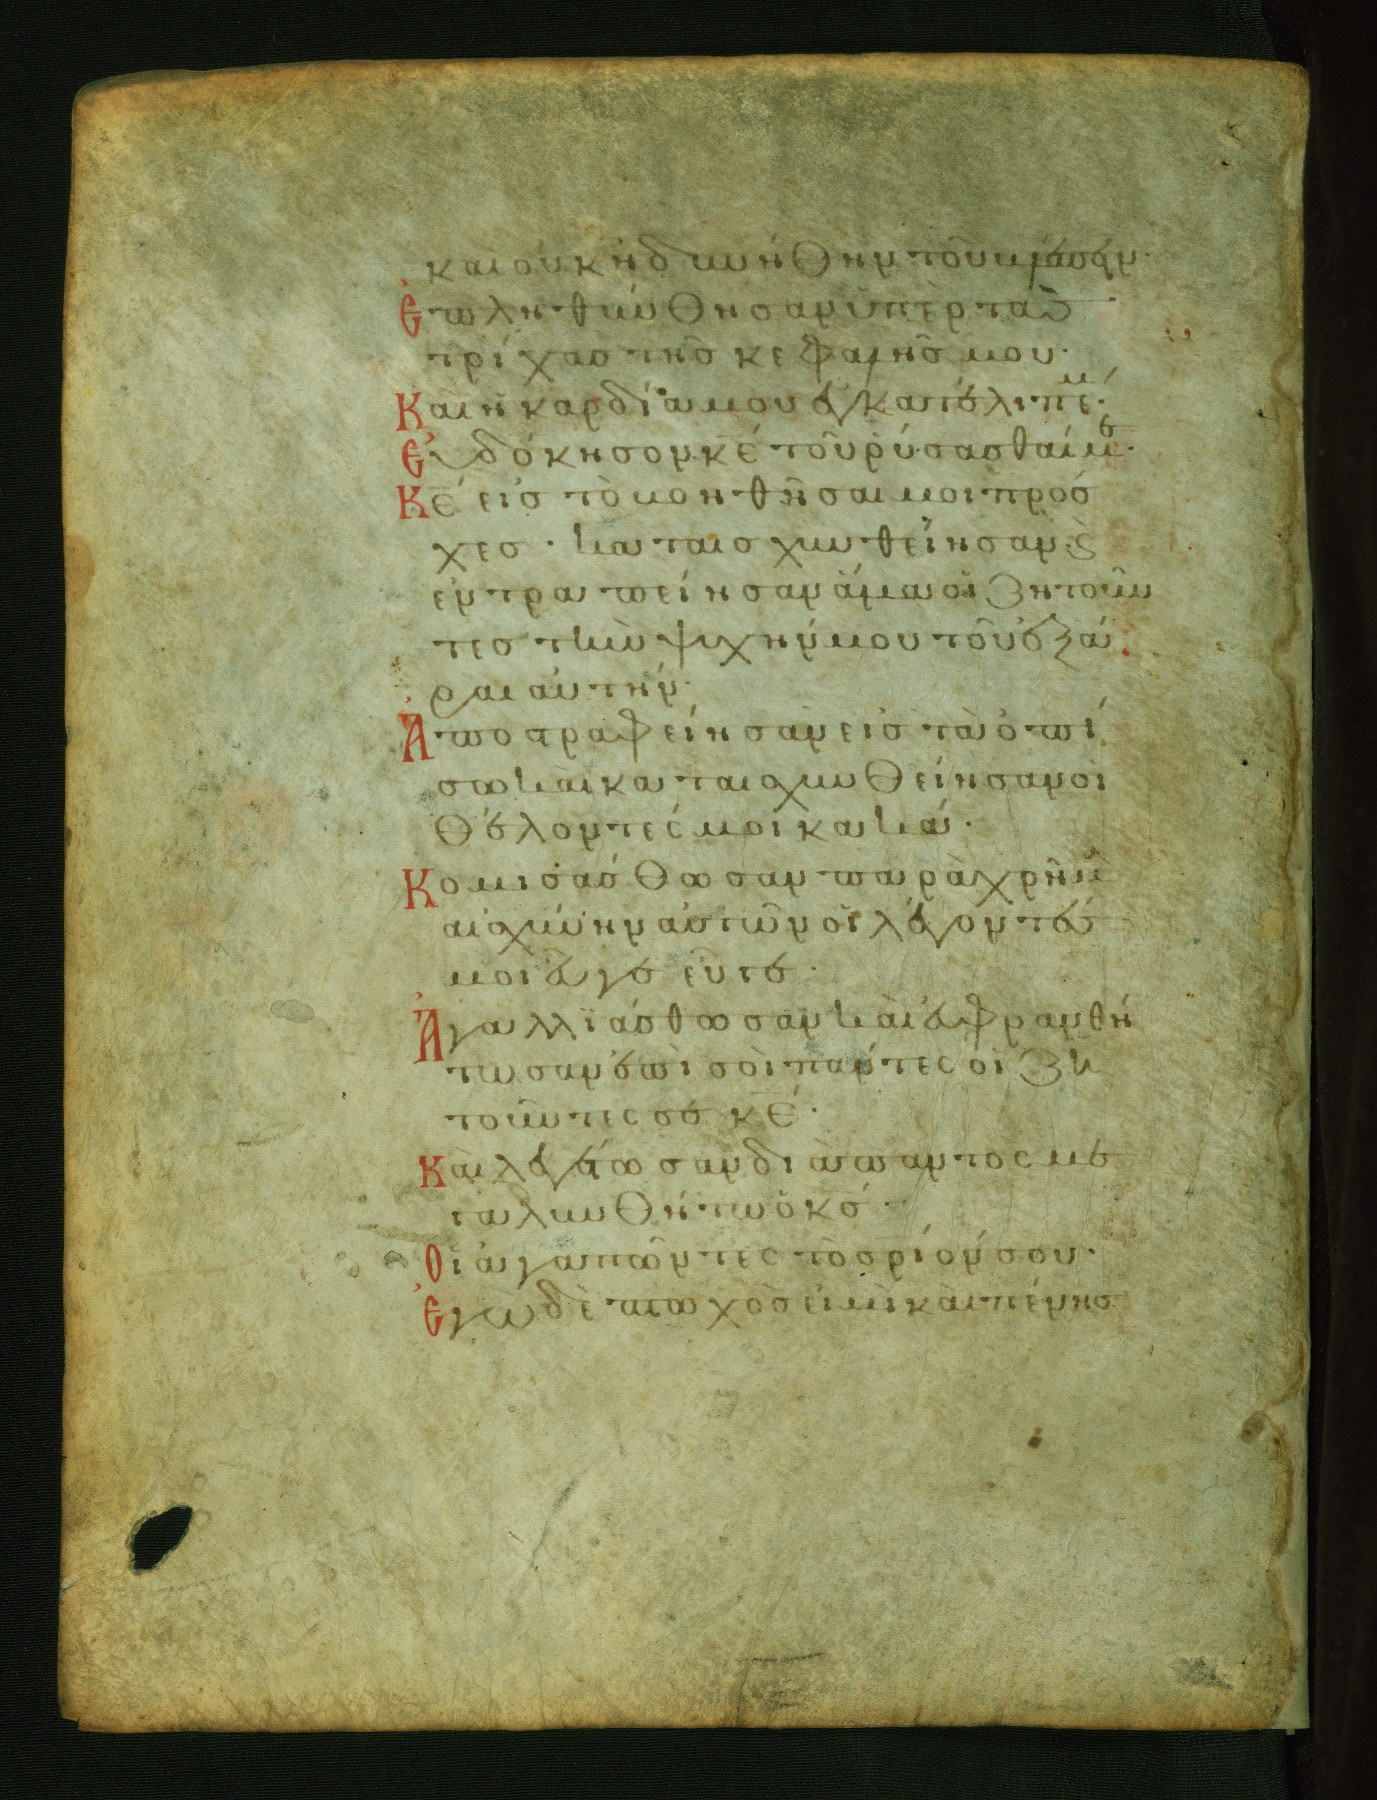 καὶ οὐκ ἠδυνήθην τοῦ βλέπειν·
Ἐπληθύνθησαν ὑπὲρ τὰσ
τρίχασ τῆσ κεφαλῆσ μου·
Καὶ ἡ καρδία μου ἐγκατέλιπέ μ·
Εὐδόκησον κε τοῦ ῥύσασθαί με·
Κε εἰσ τὸ βοηθῆσαί μοι πρόσ
χεσ· καταισχυνθείησαν ϗ
ἐντραπείησαν ἅμα οἱ ζητοῦν
τεσ τὴν ψυχήν μου τοῦ ἐξᾶ
ραι αὐτήν·
Ἀποστραφείησαν εἰσ τὰ ὀπί
σω καὶ καταισχυνθείησαν οἱ
θέλοντές μοι κακά·
Κομισάσθωσαν παραχρῆμ
αἰσχύνην αὐτῶν οἱ λέγοντέσ
μοι εὖγε εὖγε·
Ἀγαλλιάσθωσαν καὶ εὐφρανθή
τωσαν ἐπὶ σοὶ πάντες οἱ ζη
τοῦντες σε κε·
Καὶ λεγέτωσαν διὰ παντὸς με
γαλυνθήτω ὁ κσ·
Οἱ ἀγαπῶντες τὸ σριόν σου·
Ἐγὼ δὲ πτωχὸσ εἰμὶ καὶ πένησ